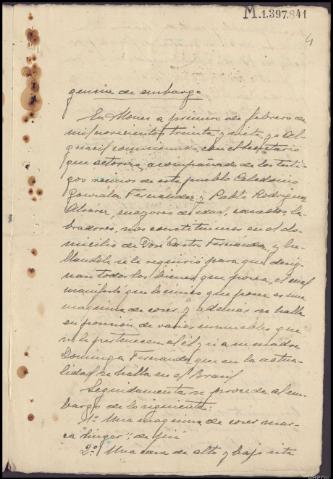 M.1.397.841
4
gencia de embargo
En Mones a primero de febrero de
mil novecientos treinta y siete, yo el
Alguacil comisionado con el Secretario
que autoriza, acompañado de los testi
gos vecinos de este pueblo Celedonio
González Fernández y Pablo Rodríguez
Alvarez, mayores de edad, casados, la
bradores, nos constituimos en el do
micilio de Don Fernández, y ha
llándole se le requirió para que desig
nara todos los bienes que poseía, el cual
manifestó que lo único que posee es una
maquina de coser y ademas se halla
en posesión de varios inmuebles que
no le pertenecen a él y si a su madre
Dominga Fernández que en la actua
lidad se halla en el Brasil
Seguidamente se procede al em
bargo de lo siguiente:
1º Una maquina de coser mar
ca "Singer", de pié
2º Una casa de alto y bajo sita